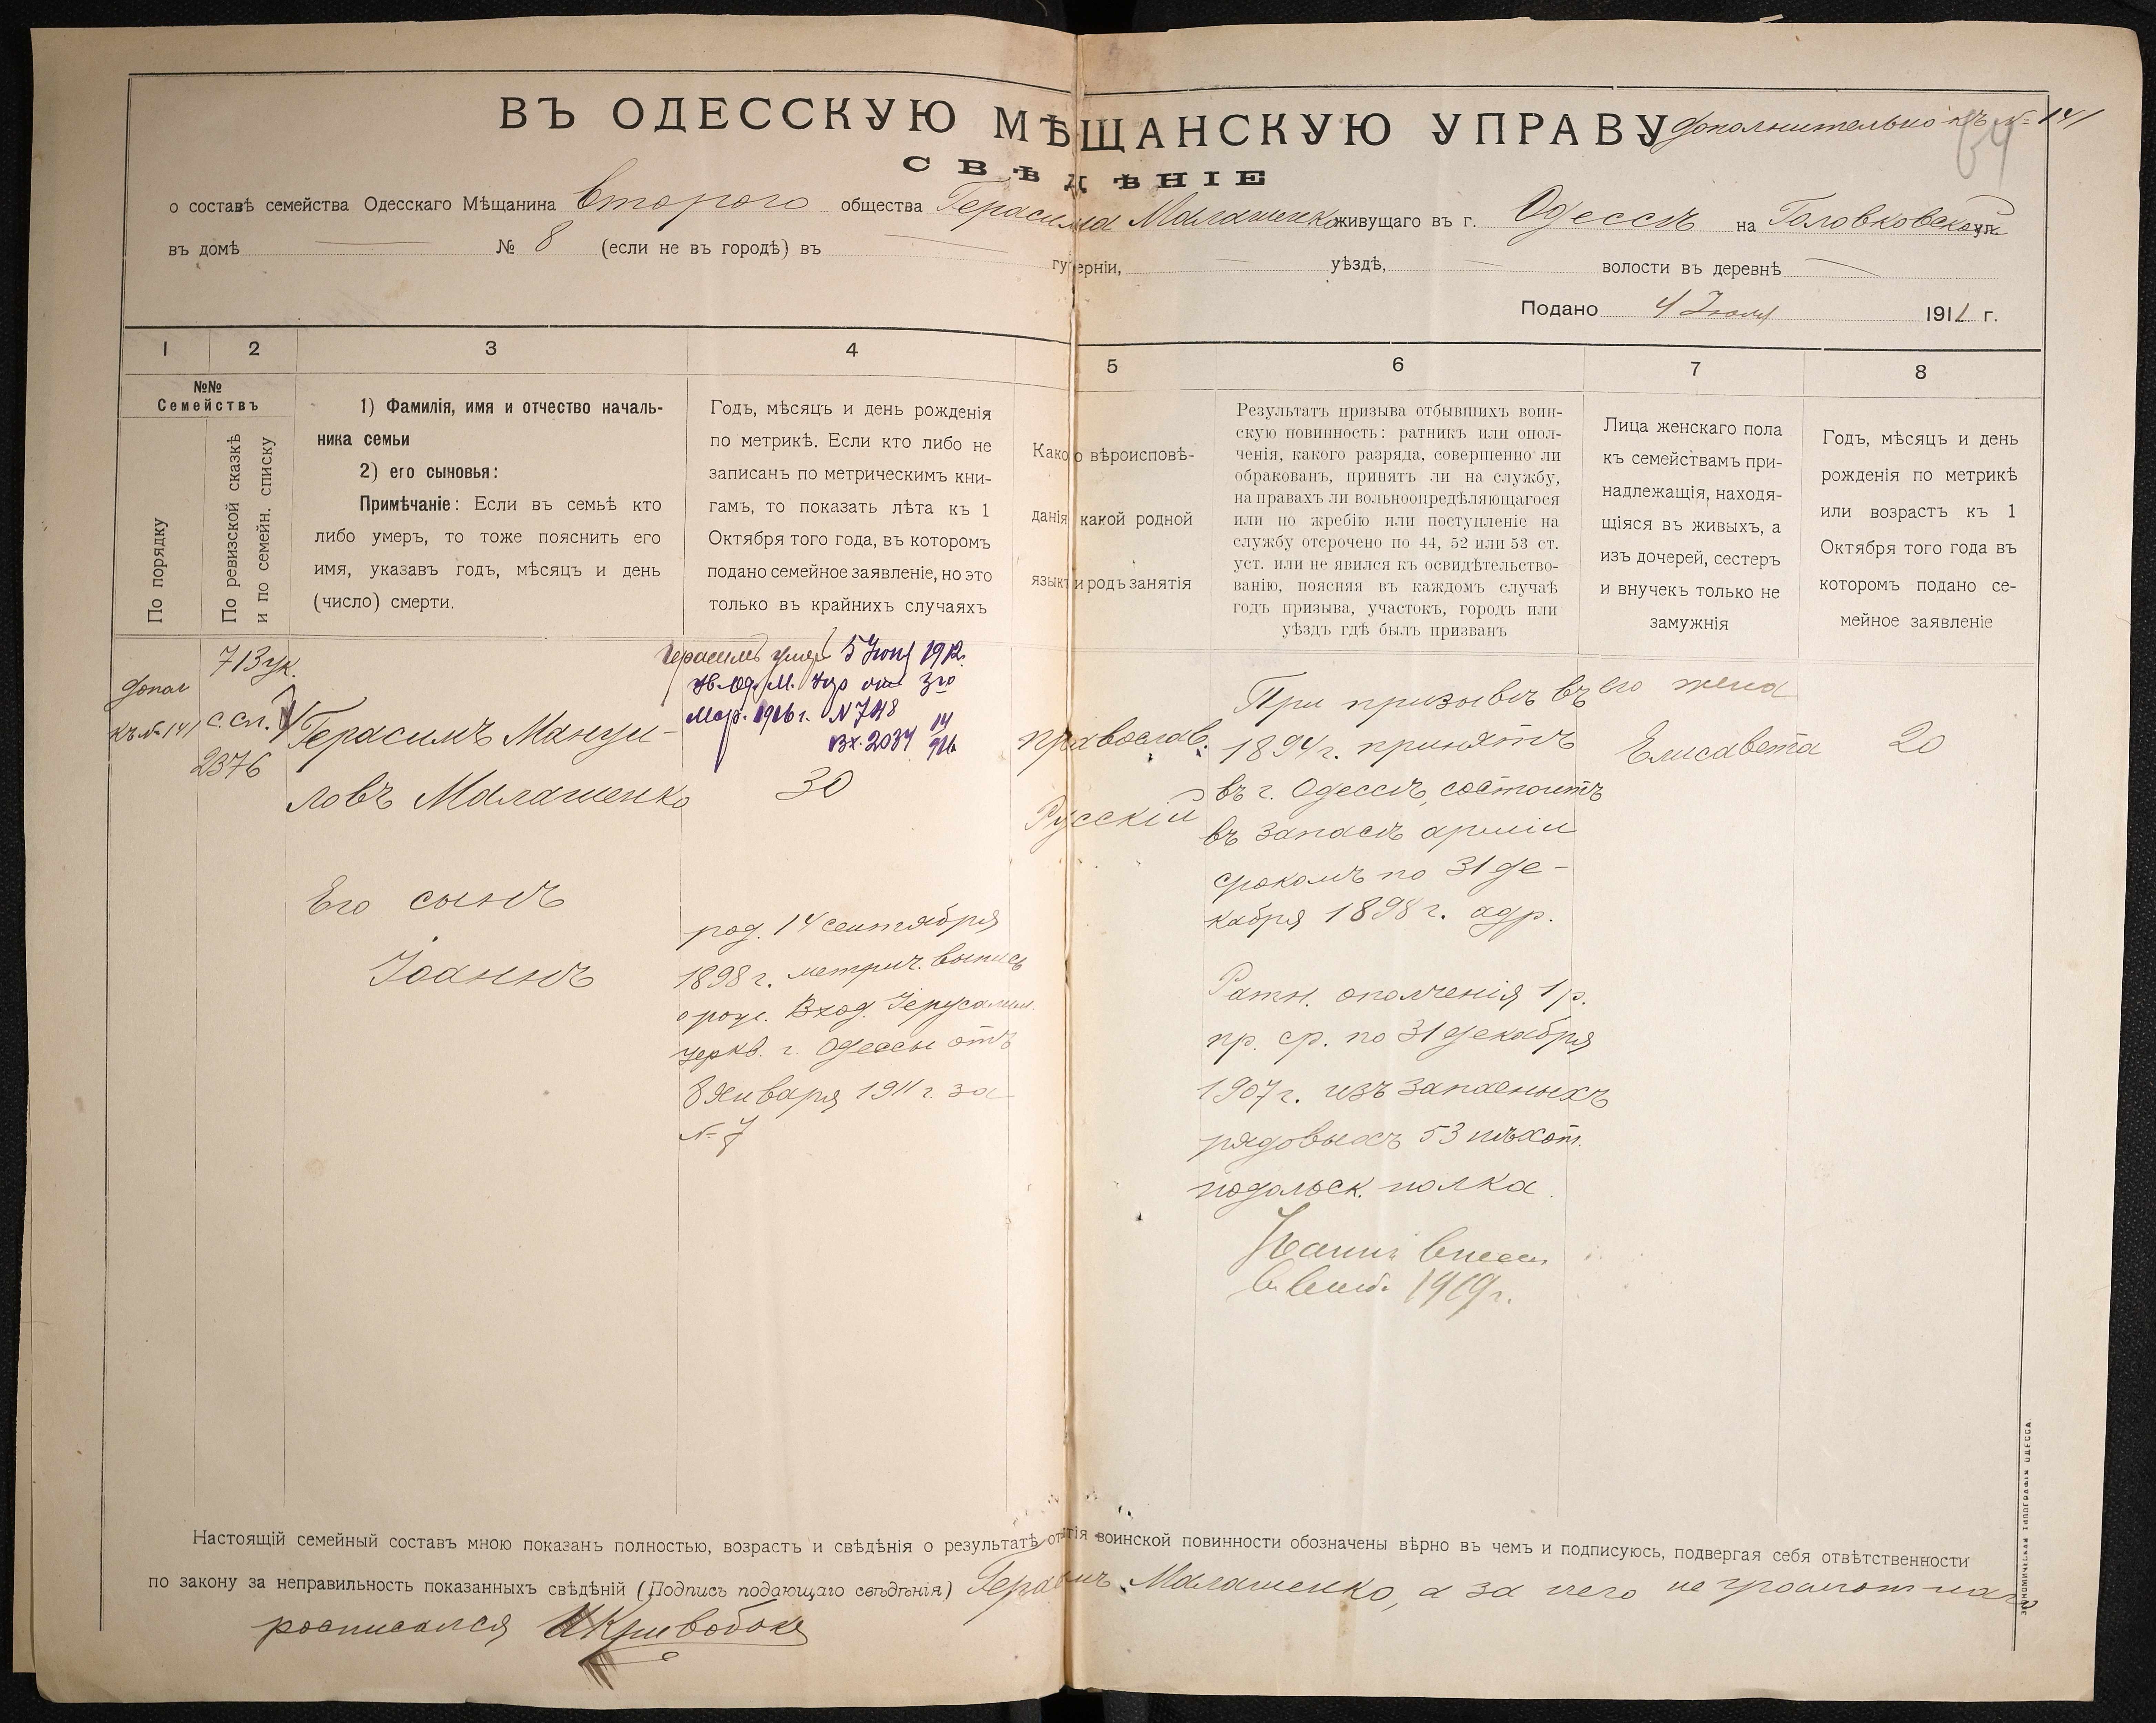 ВЪ ОДЕССКУЮ МѢЩАНСКУЮ УПРАВУ
дополнительно къ № 141
СВѢДѢНІЕ
о составѣ семейства Одесскаго Мѣщанина второго общества Герасима Малашенко живущаго въ г. Одессѣ на Головковской ул.
въ домѣ № 8 (если не въ городѣ) въ губерніи, уѣздѣ, волости въ деревнѣ
Подано 4 Іюля 1911 г.
1 2 3 4 5 6 7 8
№№
Семействъ
По порядку
По ревизской сказкѣ
и по семейн. списку
1) Фамилія, имя и отчество началь-
ника семьи
2) его сыновья:
Примѣчаніе: Если въ семьѣ кто
либо умеръ, то тоже пояснить его
имя, указавъ годъ, мѣсяцъ и день
(число) смерти.
Годъ, мѣсяцъ и день рожденія
по метрикѣ. Если кто либо не
записанъ по метрическимъ кни-
гамъ, то показать лѣта къ 1
Октября того года, въ которомъ
подано семейное заявленіе, но это
только въ крайнихъ случаяхъ
Какого вѣроисповѣ-
данія какой родной
языкъ и родъ занятія
Результатъ призыва отбывшихъ воин-
скую повинность: ратникъ или опол-
ченія, какого разряда, совершенно ли
обракованъ, принятъ ли на службу,
на правахъ ли вольноопредѣляющагося
или по жребію или поступленіе на
службу отсрочено по 44, 52 или 53 ст.
уст. или не явился къ освидѣтельство-
ванію, поясняя въ каждомъ случаѣ
годъ призыва, участокъ, городъ или
уѣздъ гдѣ былъ призванъ
Лица женскаго пола
къ семействамъ при-
надлежащія, находя-
щіяся въ живыхъ, а
изъ дочерей, сестеръ
и внучекъ только не
замужнія
Годъ, мѣсяцъ и день
рожденія по метрикѣ
или возрастъ къ 1
Октября того года въ
которомъ подано се-
мейное заявленіе
допол
къ № 141
713 ук.
с. сп.
2376
Герасимъ Мануи-
ловъ Малашенко
Его сынъ
Іоаннъ
Герасимъ умеръ 5 Іюня 1912.
от 3го
Мар. 1916 г. N 748
Вх. 2034 14
916
30
род. 14 сентября
1898 г. метрич. выпись
о рожд. Вход. Іерусалим.
церкв. г. Одессы отъ
8 Января 1911 г. за
№ 7
православ.
Русскій
При призывѣ въ
1894 г. принятъ
въ г. Одессѣ, состоитъ
въ запасѣ арміи
срокомъ по 31 де-
кабря 1898 г. адр.
Ратн. ополченія 1 р.
пр. ср. по 31 декабря
1907 г. изъ запасныхъ
рядовыхъ 53 пѣхот.
подольск. полка.
Іоаннъ внесен
1919 г.
его жена
Елисавета
20
Настоящій семейный составъ мною показанъ полностью, возрастъ и свѣдѣнія о результатѣ отбытія воинской повинности обозначены вѣрно въ чемъ и подписуюсь, подвергая себя отвѣтственности
по закону за неправильность показанныхъ свѣдѣній (Подпись подающаго свѣдѣнія) Герасимъ Малашенко, а за него не грамотнаго
росписался И Кривобокъ
ЭКОНОМИЧЕСКАЯ ТИПОГРАФІЯ ОДЕССА.